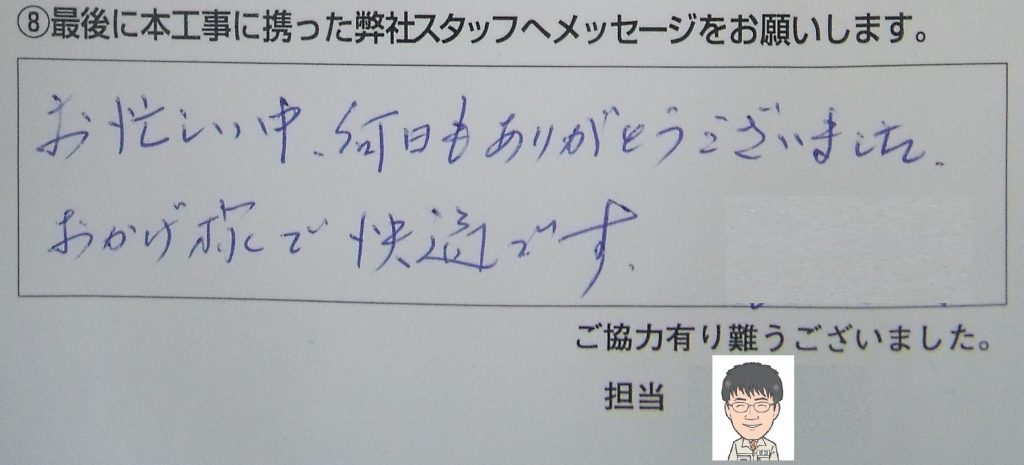 ⑧最後に本工事に携った弊社スタッフへメッセージをお願いします。
お忙しい中、何日もありがとうございました。
おかげ様で快適です。
ご協力有り難うございました。
担当